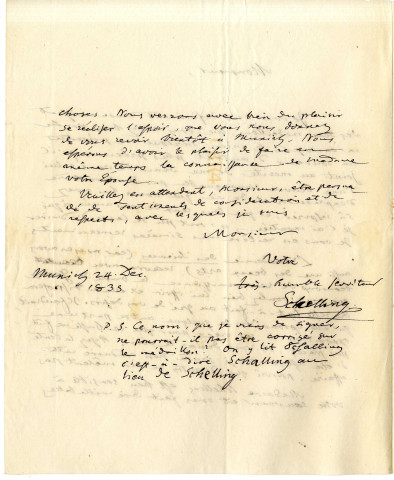 choses. Nous verrons avec bien du plaisir
se réaliser l'espoir, que vous nous donnez
de vous revoir bientôt à Munich. Nous
espérons d'avoir le plaisir de faire en
même temps la connaissance de Madame
votre Epouse.
Veuillez en attendant, Monsieur, être persua
dé de sentiments de considération et de
respects, avec lesquels je suis
Monsieur
Votre
très-humble serviteur
Munich 24 Dec.
1833
Schelling
P. S. Ce nom, que je viens de signer,
ne pourrait-il pas être corrigé sur
le médaillon? On y lit
c'est-à-dire Schalling au
lieu de Schelling.